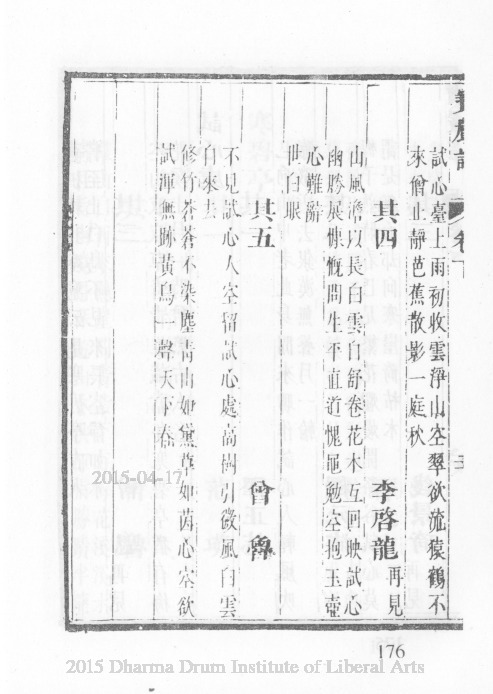 卷下
試心臺上雨初收雲淨山空翠欲流猿鶴不
來僧止靜芭蕉散影一庭秋
其四 李啓龍 再見
山風澹以長白雲自舒卷花木互回映試心
幽勝展慷慨問生平直道愧黽勉空抱玉壺
心難辭
世白眼
其五 曾
不見試心人空留試心處高樹引微風白雲
自來去
修竹蒼蒼不染塵青山如黛草如茵心空欲
試渾無跡黃鳥一聲天下春
2015-04-17
176
2015 Dharma Drum Institute of Liberal Arts